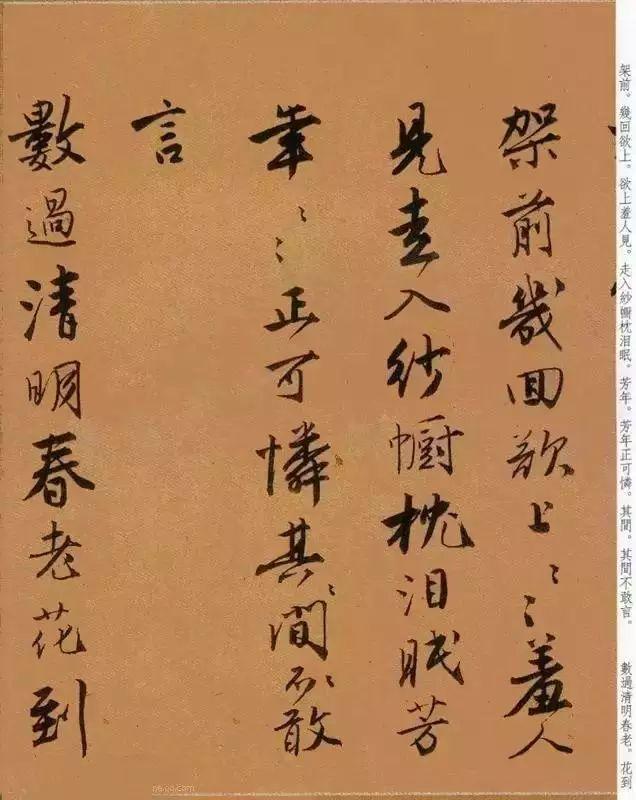 架前。幾回欲上。欲上羞人見。走入紗幮枕泪眠。芳年。芳年正可憐。其間。其間不敢言。　數過清明春老。花到
架前幾回欲上〻〻羞人
見走入紗幮枕泪眠芳
年〻〻正可憐其〻間〻不敢
言
數過清明春老花到